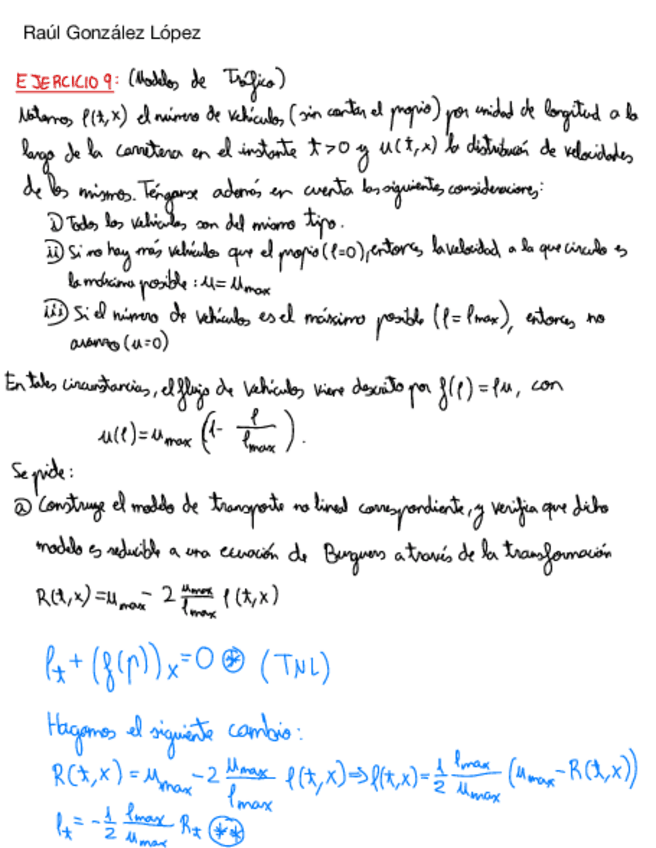 Raúl González López
EJERCICIO 9: (Modelos de Tráfico)
Notamos ρ(t,x) el número de vehículos (sin contar el propio) por unidad de longitud a lo
largo de la carretera en el instante t>0 y u(t,x) la distribución de velocidades
de los mismos. Ténganse además en cuenta las siguientes consideraciones:
i) Todos los vehículos son del mismo tipo.
ii) Si no hay más vehículos que el propio (ρ=0), entonces la velocidad a la que circula es
la máxima posible: u= u_max
iii) Si el número de vehículos es el máximo posible (ρ= ρ_max), entonces no
avanzo (u=0)
En tales circunstancias, el flujo de vehículos viene descrito por f(ρ)=ρu, con
u(ρ)=u_max (1- ρ/ρ_max).
Se pide:
a) Construye el modelo de transporte no lineal correspondiente, y verifica que dicho
modelo es reducible a una ecuación de Burguers a través de la transformación
R(t,x)=u_max - 2 u_max/ρ_max ρ(t,x)
ρ_t + (f(ρ))_x = 0 (*) (TNL)
Hagamos el siguiente cambio:
R(t,x) = u_max - 2 u_max/ρ_max ρ(t,x) ⇒ ρ(t,x) = 1/2 ρ_max/u_max (u_max - R(t,x))
ρ_t = - 1/2 ρ_max/u_max R_t (**)